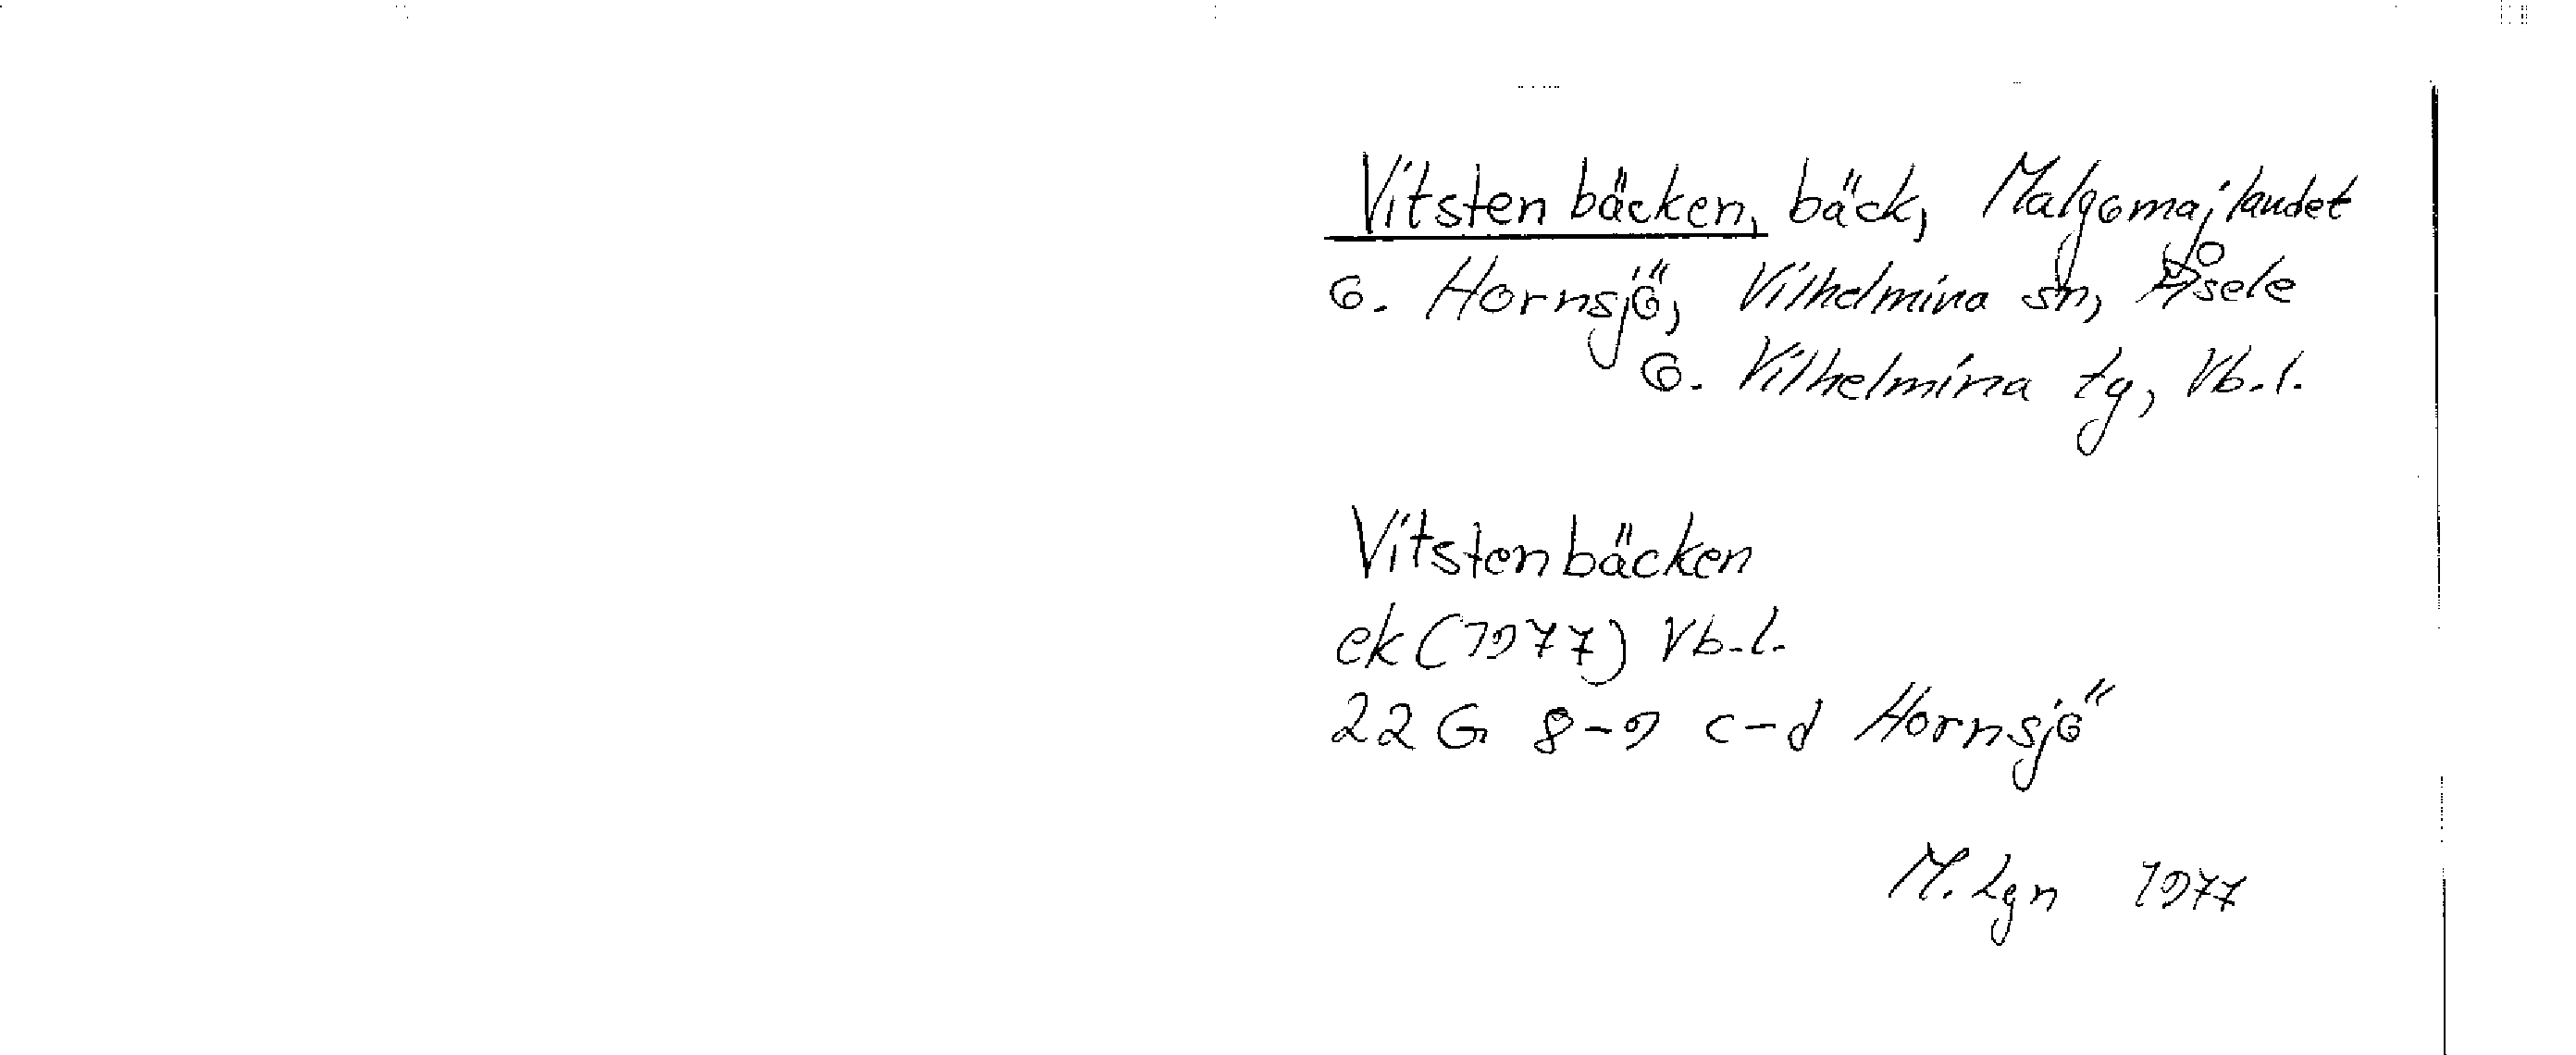 Vitstenbäcken, bäck, Malgomajlandet
o. Hornsjö, Vilhelmina sn, Åsele
o. Vilhelmina tg, Vb. l.
Vitstenbäcken
ek (1977) Vb. l.
22 G 8-9 c-d Hornsjö
M. Lgn 1977